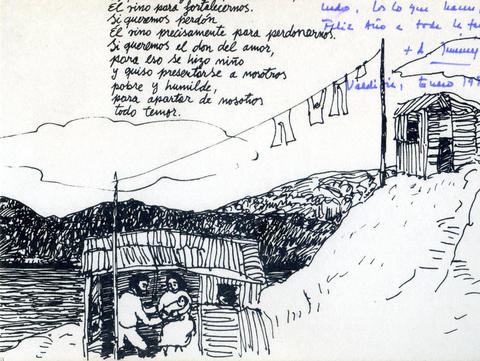 El vino para fortalecernos.
Si queremos perdón
El vino precisamente para perdonarnos.
Si queremos el don del amor,
para eso se hizo niño
y quiso presentarse a nosotros
pobre y humilde,
para apartar de nosotros
todo temor.
lo que
Feliz Año a toda la
Valdivia, Enero 19